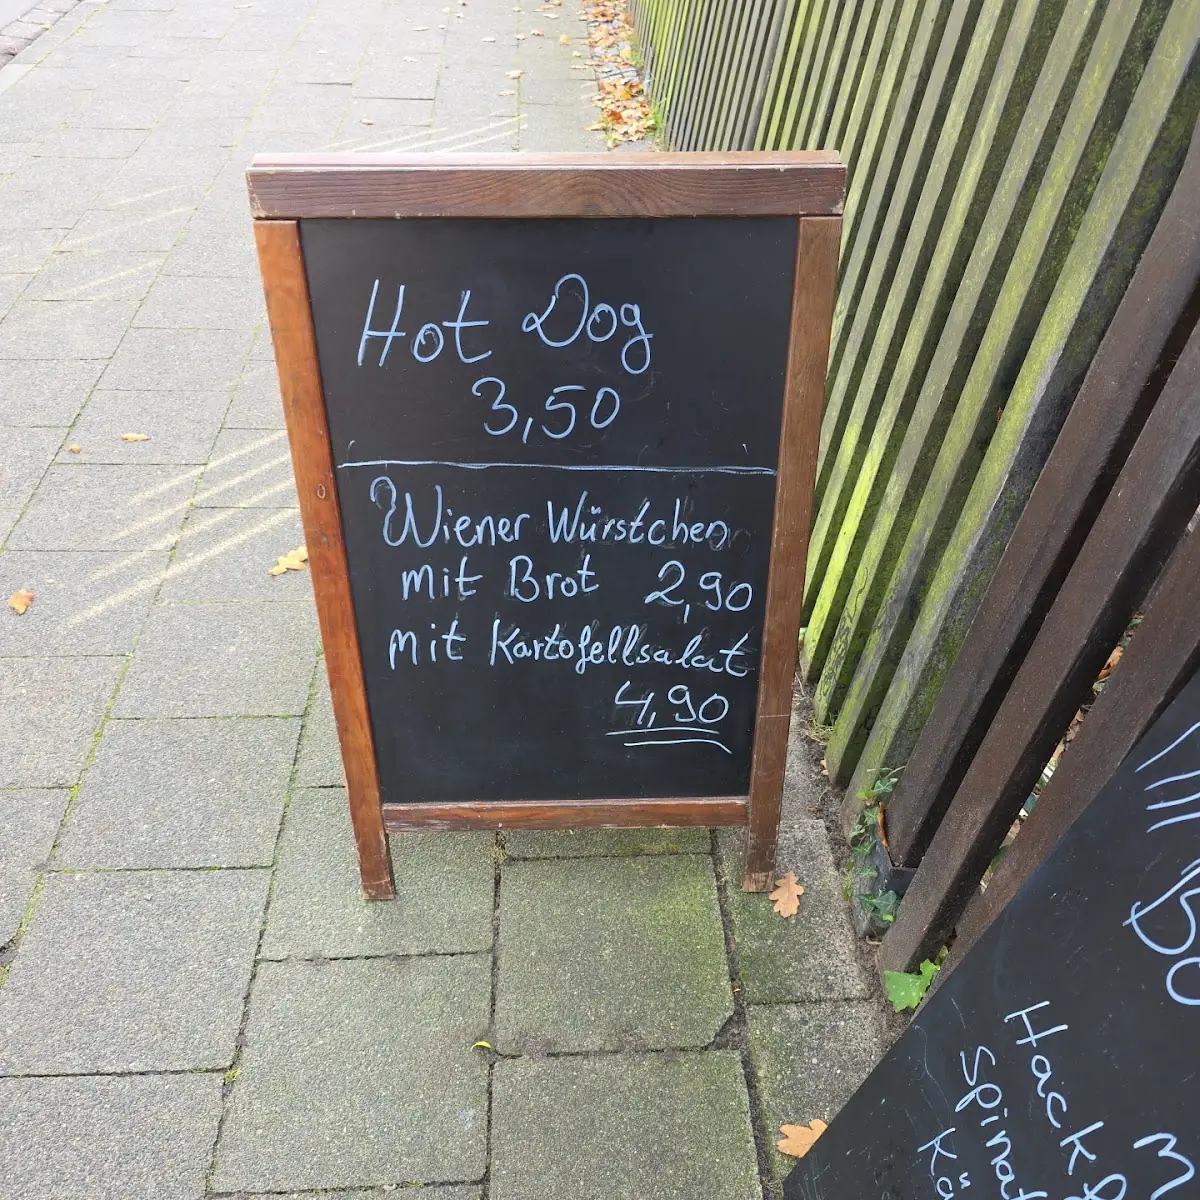 Hot Dog
3,50
Wiener Würstchen
mit Brot 2,90
mit Kartofellsalat
4,90